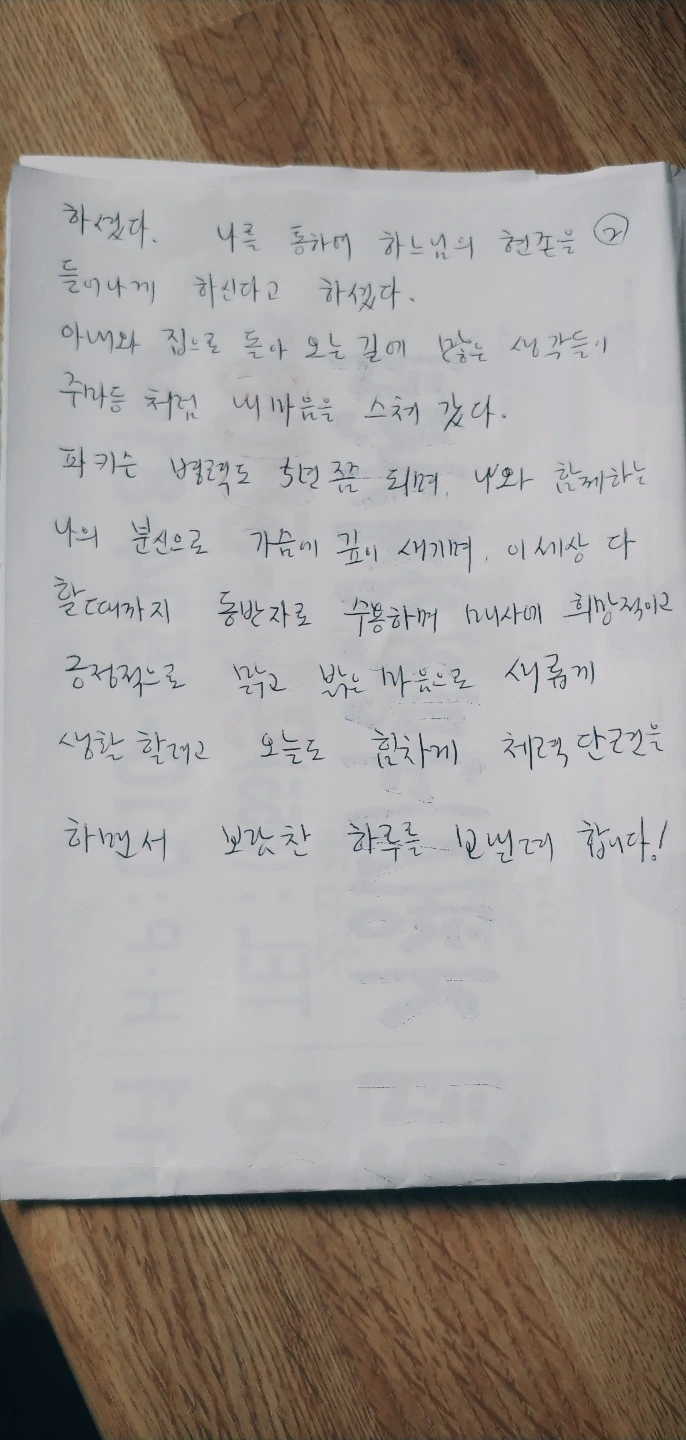 하셨다. 나를 통하여 하느님의 현존을 ②
들어나게 하신다고 하셨다.
아내와 집으로 돌아 오는 길에 많은 생각들이
주마등 처럼 내 마음을 스쳐 갔다.
파키슨 병력도 5년 쯤 되며, 나와 함께하는
나의 분신으로 가슴에 깊이 새기며, 이 세상 다
할때까지 동반자로 수용하며 매사에 희망적이고
긍정적으로 맑고 밝은 마음으로 새롭게
생활 할려고 오늘도 힘차게 체력 단련을
하면서 보람찬 하루를 보낼려 합니다!